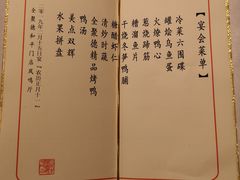 【宴会菜单】
冷菜六围碟
罐烩乌鱼蛋
火燎鸭心
葱烧蹄筋
糟溜鱼片
干烧冬笋鸭脯
糖醋虾仁
全聚德精品烤鸭
清炒时蔬
鸭汤
美点双辉
水果拼盘
二零一九年二月十五日宴（农历正月十一）
全聚德和平门店凤鸣厅